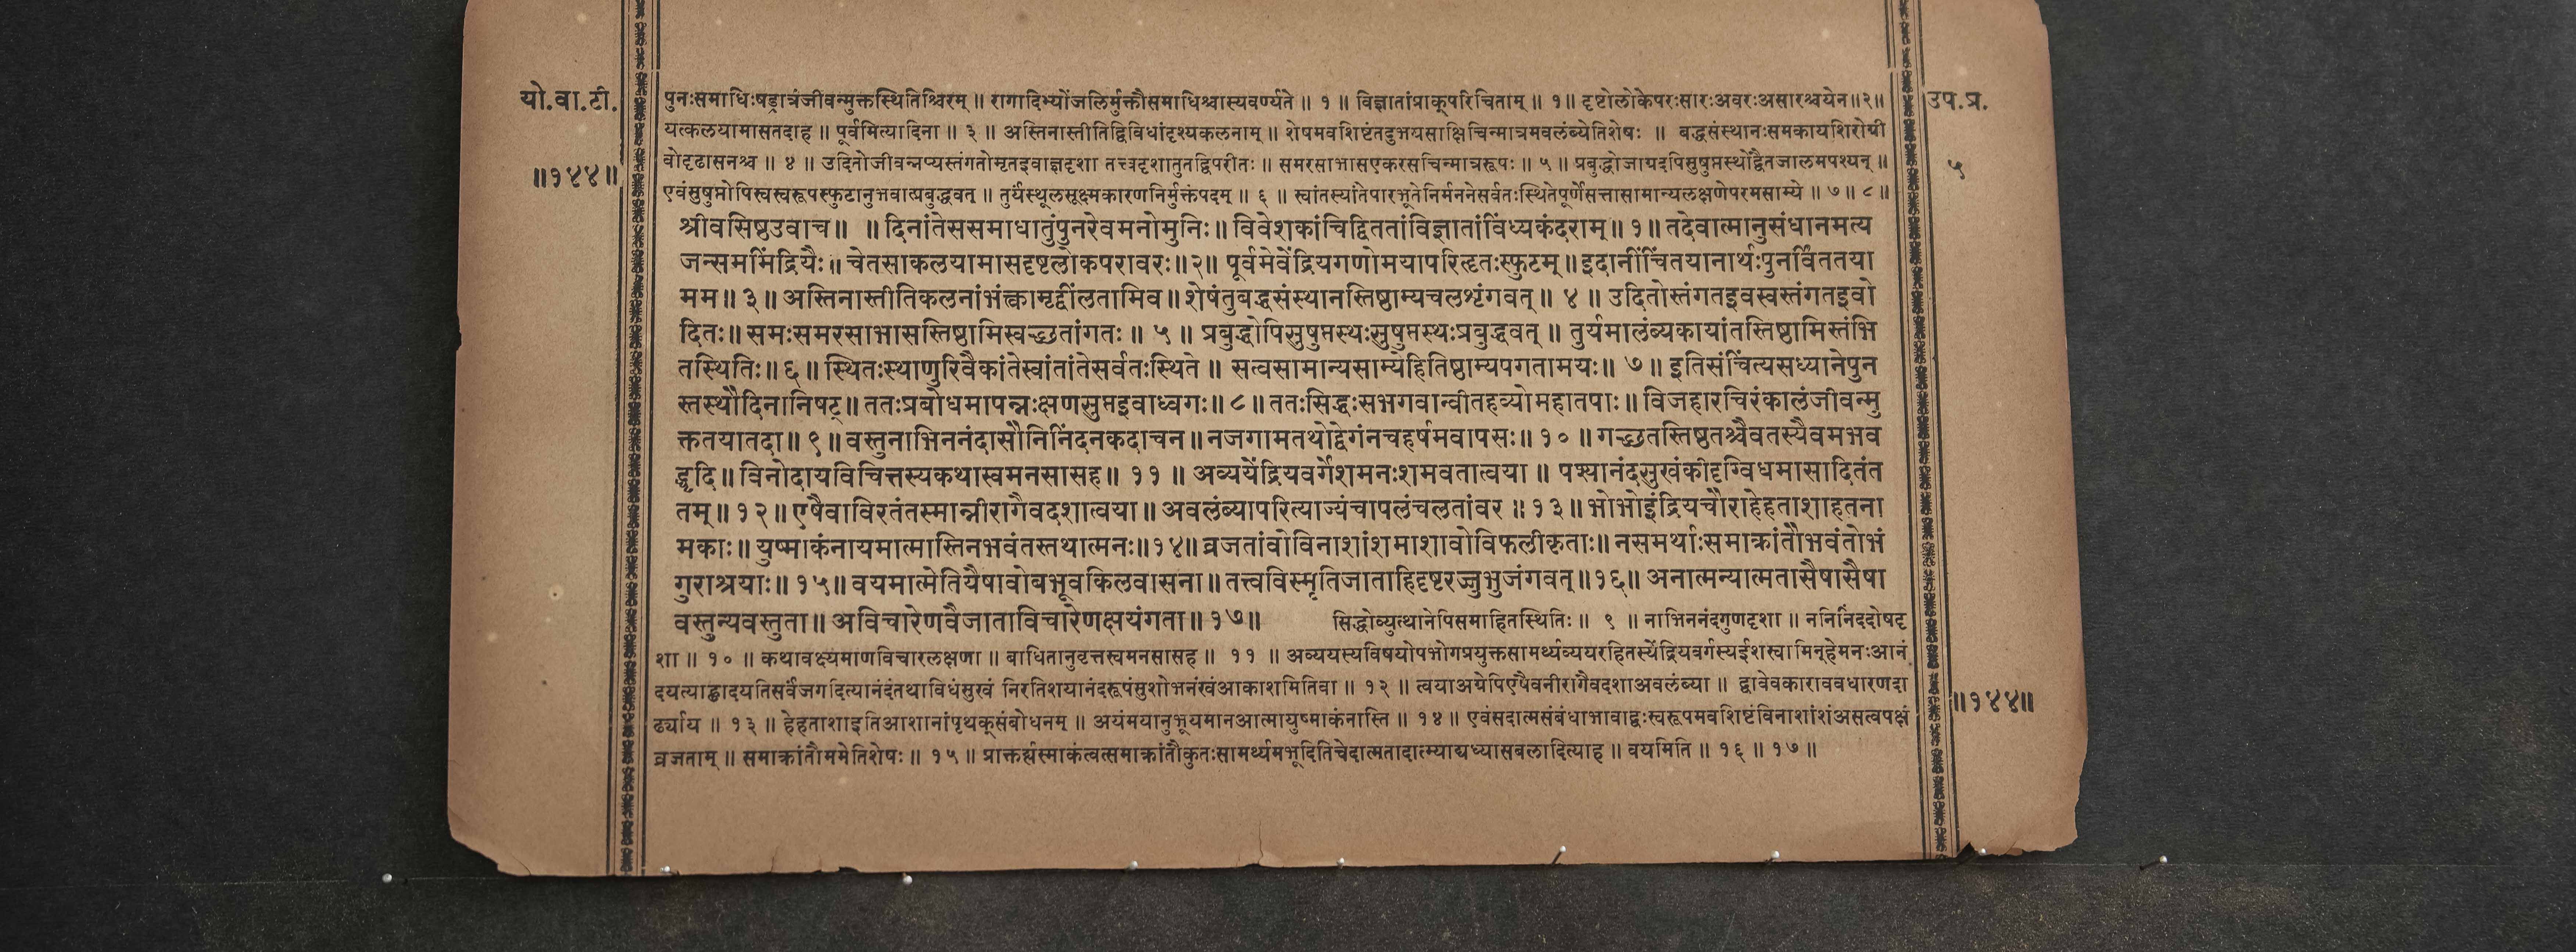 यो.वा.टी.
॥१४४॥
पुनःसमाधिःषड्रात्रंजीवन्मुक्तस्थितिश्चिरम् ॥ रागादिभ्योंजलिर्मुक्तौसमाधिश्चास्यवर्ण्यते ॥ १ ॥ विज्ञातांप्राक्परिचिताम् ॥ १॥ दृष्टोलोकेपरःसारःअवरःअसारश्चयेन॥२॥
यत्कलयामासतदाह ॥ पूर्वमित्यादिना ॥ ३ ॥ अस्तिनास्तीतिद्विविधांदृश्यकलनाम् ॥ शेषमवशिष्टंतदुभयसाक्षिचिन्मात्रमवलंब्येतिशेषः ॥ बद्धसंस्थानःसमकायशिरोग्री
वोदृढासनश्च ॥ ४ ॥ उदितोजीवन्नप्यस्तंगतोमृतइवाज्ञदृशा तत्त्वदृशातुतद्विपरीतः ॥ समरसाभासएकरसचिन्मात्ररूपः ॥ ५ ॥ प्रबुद्धोजाग्रदपिसुषुप्तस्थोद्वैतजालमपश्यन् ॥
एवंसुषुप्तोपिस्वस्वरूपस्फुटानुभवात्प्रबुद्धवत् ॥ तुर्यंस्थूलसूक्ष्मकारणनिर्मुक्तंपदम् ॥ ६ ॥ स्वांतस्यांतेपारभूतेनिर्मननेसर्वतःस्थितेपूर्णेसत्तासामान्यलक्षणेपरमसाम्ये ॥ ७॥ ८॥
श्रीवसिष्ठउवाच॥ ॥ दिनांतेससमाधातुंपुनरेवमनोमुनिः॥ विवेशकांचिद्विततांविज्ञातांविंध्यकंदराम्॥ १॥ तदेवात्मानुसंधानमत्य
जन्सममिंद्रियैः॥ चेतसाकलयामासदृष्टलोकपरावरः॥२॥ पूर्वमेवेंद्रियगणोमयापरिहृतःस्फुटम्॥ इदानींचिंतयानार्थःपुनर्विततया
मम॥ ३॥ अस्तिनास्तीतिकलनांभंक्त्वामृद्वींलतामिव॥ शेषंतुबद्धसंस्थानस्तिष्ठाम्यचलशृंगवत्॥ ४ ॥ उदितोस्तंगतइवस्वस्तंगतइवो
दितः॥ समःसमरसाभासस्तिष्ठामिस्वच्छतांगतः॥ ५ ॥ प्रबुद्धोपिसुषुप्तस्थःसुषुप्तस्थःप्रबुद्धवत् ॥ तुर्यमालंब्यकायांतस्तिष्ठामिस्तंभि
तस्थितिः॥ ६॥ स्थितःस्थाणुरिवैकांतेस्वांतांतेसर्वतःस्थिते ॥ सत्वसामान्यसाम्येहितिष्ठाम्यपगतामयः॥ ७॥ इतिसंचिंत्यसध्यानेपुन
स्तस्थौदिनानिषट्॥ ततःप्रबोधमापन्नःक्षणसुप्तइवाध्वगः॥ ८॥ ततःसिद्धःसभगवान्वीतहव्योमहातपाः॥ विजहारचिरंकालंजीवन्मु
क्ततयातदा॥ ९॥ वस्तुनाभिननंदासौनिनिंदनकदाचन॥ नजगामतथोद्वेगंनचहर्षमवापसः॥ १०॥ गच्छतस्तिष्ठतश्चैवतस्यैवमभव
द्धृदि॥ विनोदायविचित्तस्यकथास्वमनसासह॥ ११ ॥ अव्ययेंद्रियवर्गेशमनःशमवतात्वया ॥ पश्यानंदसुखंकीदृग्विधमासादितंत
तम्॥ १२॥ एषैवाविरतंतस्मान्नीरागैवदशात्वया॥ अवलंब्यापरित्याज्यंचापलंचलतांवर॥ १३॥ भोभोइंद्रियचौराहेहताशाहतना
मकाः॥ युष्माकंनायमात्मास्तिनभवंतस्तथात्मनः॥१४॥ व्रजतांवोविनाशांशमाशावोविफलीकृताः॥ नसमर्थाःसमाक्रांतौभवंतोभं
गुराश्रयाः॥ १५॥ वयमात्मेतियैषावोबभूवकिलवासना॥ तत्त्वविस्मृतिजाताहिदृष्टरज्जुभुजंगवत्॥१६॥ अनात्मन्यात्मतासैषासैषा
वस्तुन्यवस्तुता॥ अविचारेणवैजाताविचारेणक्षयंगता॥ १७॥ सिद्धोव्युत्थानेपिसमाहितस्थितिः ॥ ९ ॥ नाभिननंदगुणदृशा ॥ ननिनिंददोषदृ
शा ॥ १० ॥ कथावक्ष्यमाणविचारलक्षणा ॥ बाधितानुवृत्तस्वमनसासह ॥ ११ ॥ अव्ययस्यविषयोपभोगप्रयुक्तसामर्थ्यव्ययरहितस्येंद्रियवर्गस्यईशस्वामिन्हेमनःआनं
दयत्याह्लादयतिसर्वंजगदित्यानंदंतथाविधंसुखं निरतिशयानंदरूपंसुशोभनंखंआकाशमितिवा ॥ १२ ॥ त्वयाअग्रेपिएषैवनीरागैवदशाअवलंब्या ॥ द्वावेवकाराववधारणदा
र्ढ्याय ॥ १३ ॥ हेहताशाइतिआशानांपृथक्संबोधनम् ॥ अयंमयानुभूयमानआत्मायुष्माकंनास्ति ॥ १४ ॥ एवंसदात्मसंबंधाभावाद्वःस्वरूपमवशिष्टंविनाशांशंअसत्वपक्षं
व्रजताम् ॥ समाक्रांतौममेतिशेषः ॥ १५ ॥ प्राक्तर्ह्यस्माकंत्वत्समाक्रांतौकुतःसामर्थ्यमभूदितिचेदात्मतादात्म्याद्यध्यासबलादित्याह ॥ वयमिति ॥ १६ ॥ १७ ॥
उप.प्र.
५
॥१४४॥